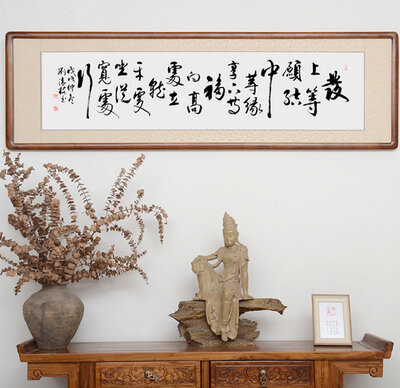 發
上等
願結
中
等緣
享下等
福
向高
處立
就
平處
坐從
寬處
行
戊戌